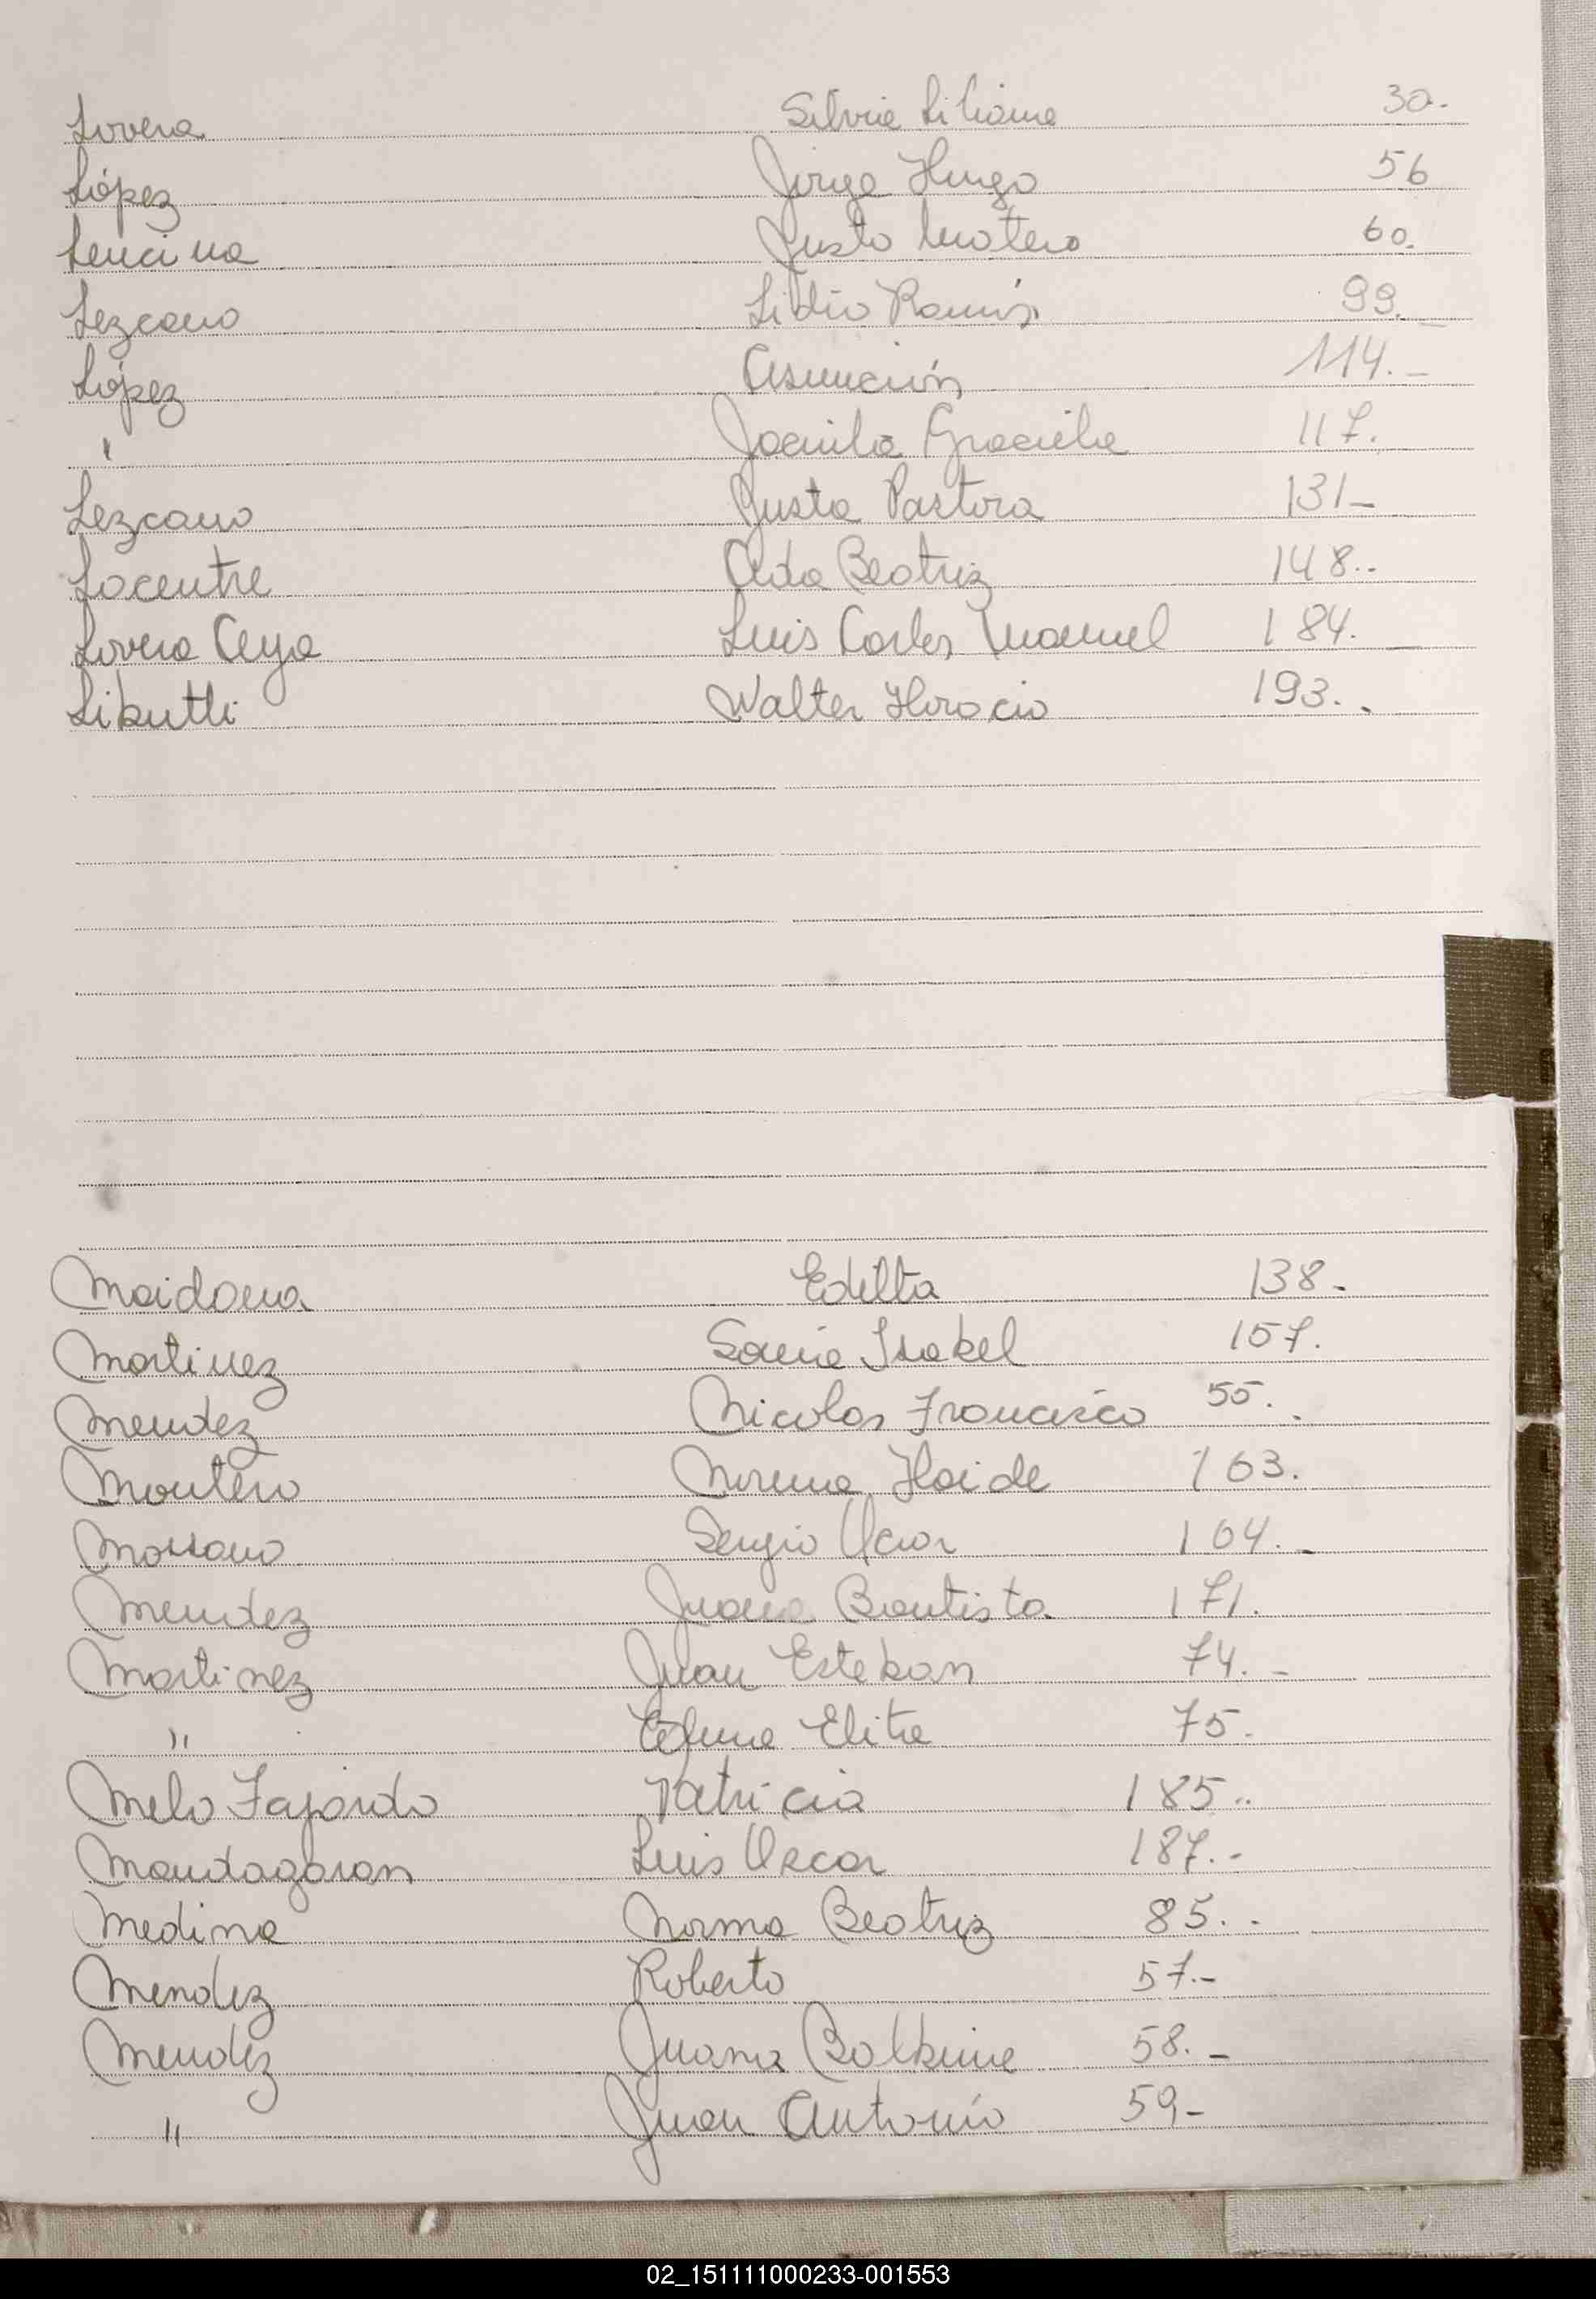 Lovera Silvia Liliana 30.
López Jorge Hugo 56
Lencina Justo 60.
Lezcano Lidio Ramón 99.
López Asunción 114.-
" Graciela 117.
Lezcano Justa Pastora 131-
Lacentre Alda Beatriz 148..
Lovera Luis Carlos Manuel 184.
Walter Horacio 193..
Maidana Edilta 138-
Martinez Sonia Isabel 157.
Mendez Nicolas Francisco 55..
Montero Norma Haide 163.
Mossano Sergio Oscar 164.-
Mendez Juana Bautista 171.
Martinez Juan Esteban 74.-
" Elina 75.
Melo Fajardo Patricia 185..
Mandagaran Luis Oscar 187.-
Medina Norma Beatriz 85..
Mendez Roberto 57.-
Mendez Juana Balbina 58.-
" Juan Antonio 59-
02_151111000233-001553